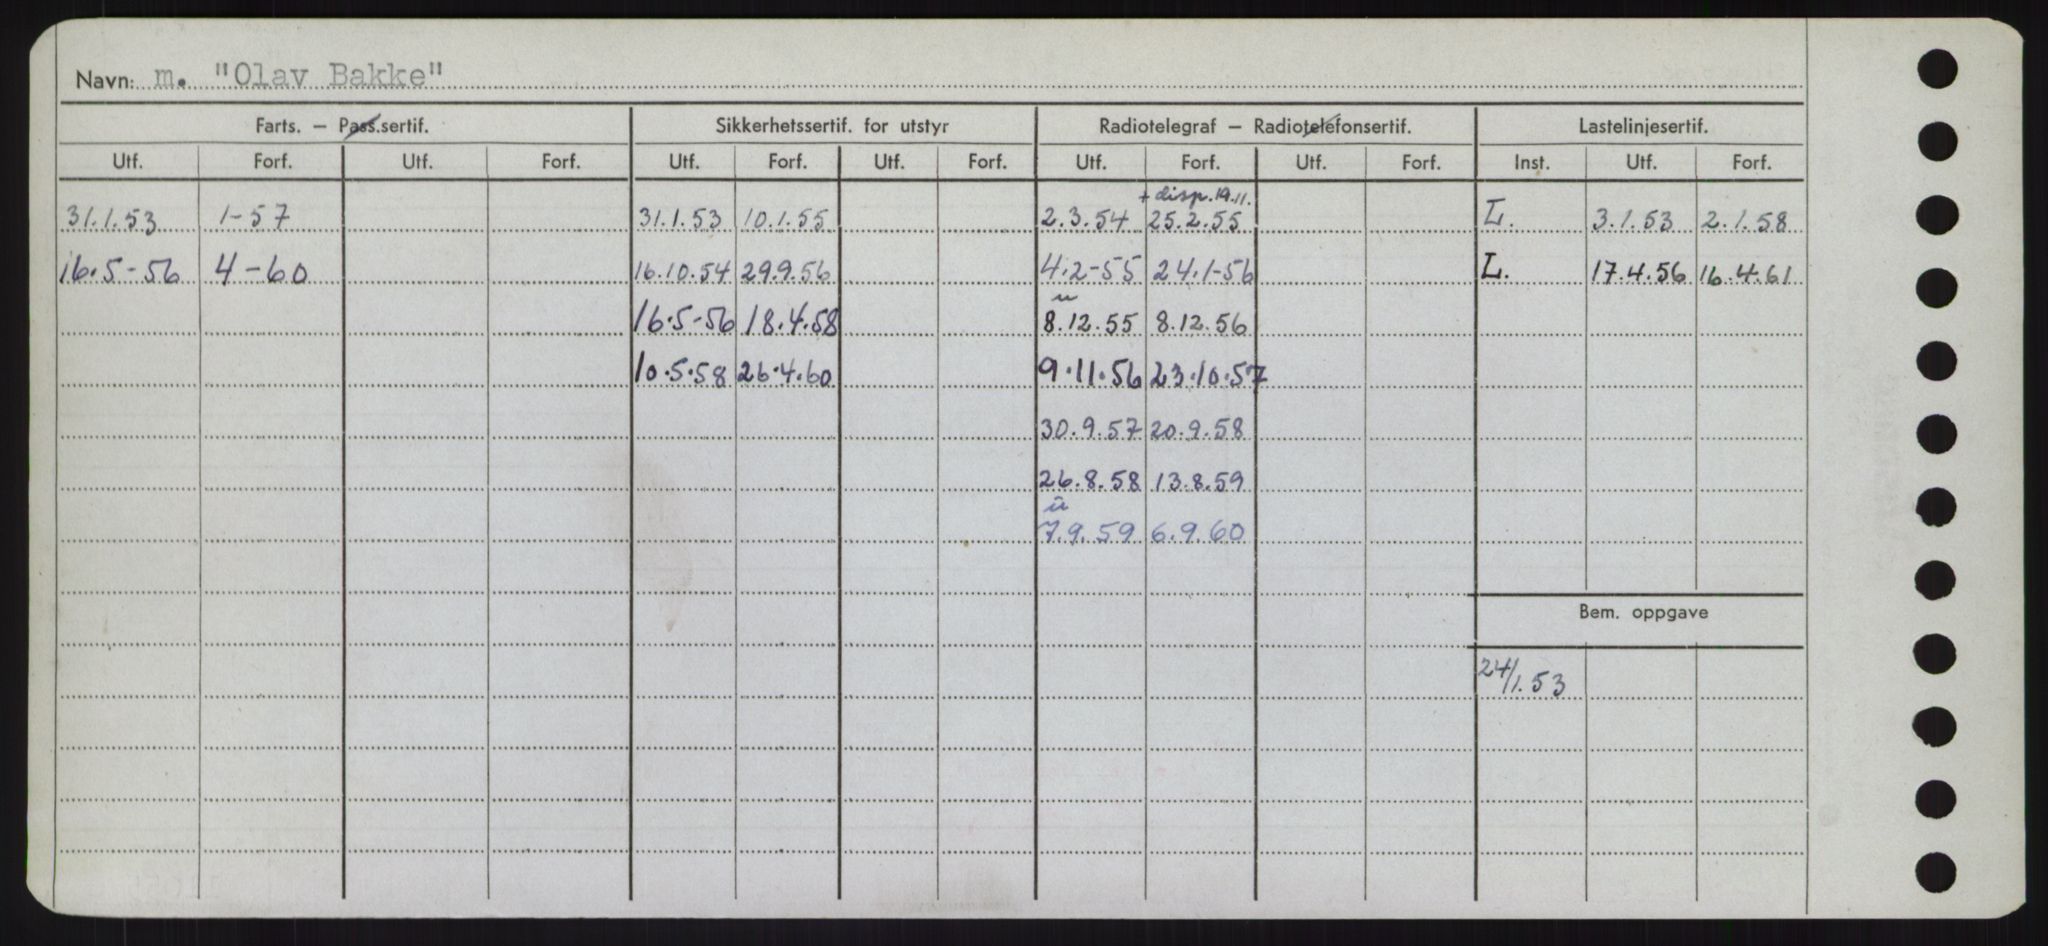 Navn: m. "Olav Bakke"
Farts. – Pass.sertif. Sikkerhetssertif. for utstyr Radiotelegraf – Radiotelefonsertif. Lastelinjesertif.
Utf. Forf. Utf. Forf. Utf. Forf. Utf. Forf. Utf. Forf. Utf. Forf. Inst. Utf. Forf.
+ disp. 19.11.
31.1.53 1-57 31.1.53 10.1.55 2.3.54 25.2.55 L. 3.1.53 2.1.58
16.5-56 4-60 16.10.54 29.9.56 4.2-55 24.1-56 L. 17.4.56 16.4.61
u
16.5-56 18.4.58 8.12.55 8.12.56
10.5.58 26.4.60 9.11.56 23.10.57
30.9.57 20.9.58
26.8.58 13.8.59
7.9.59 6.9.60
Bem. oppgave
24/1.53